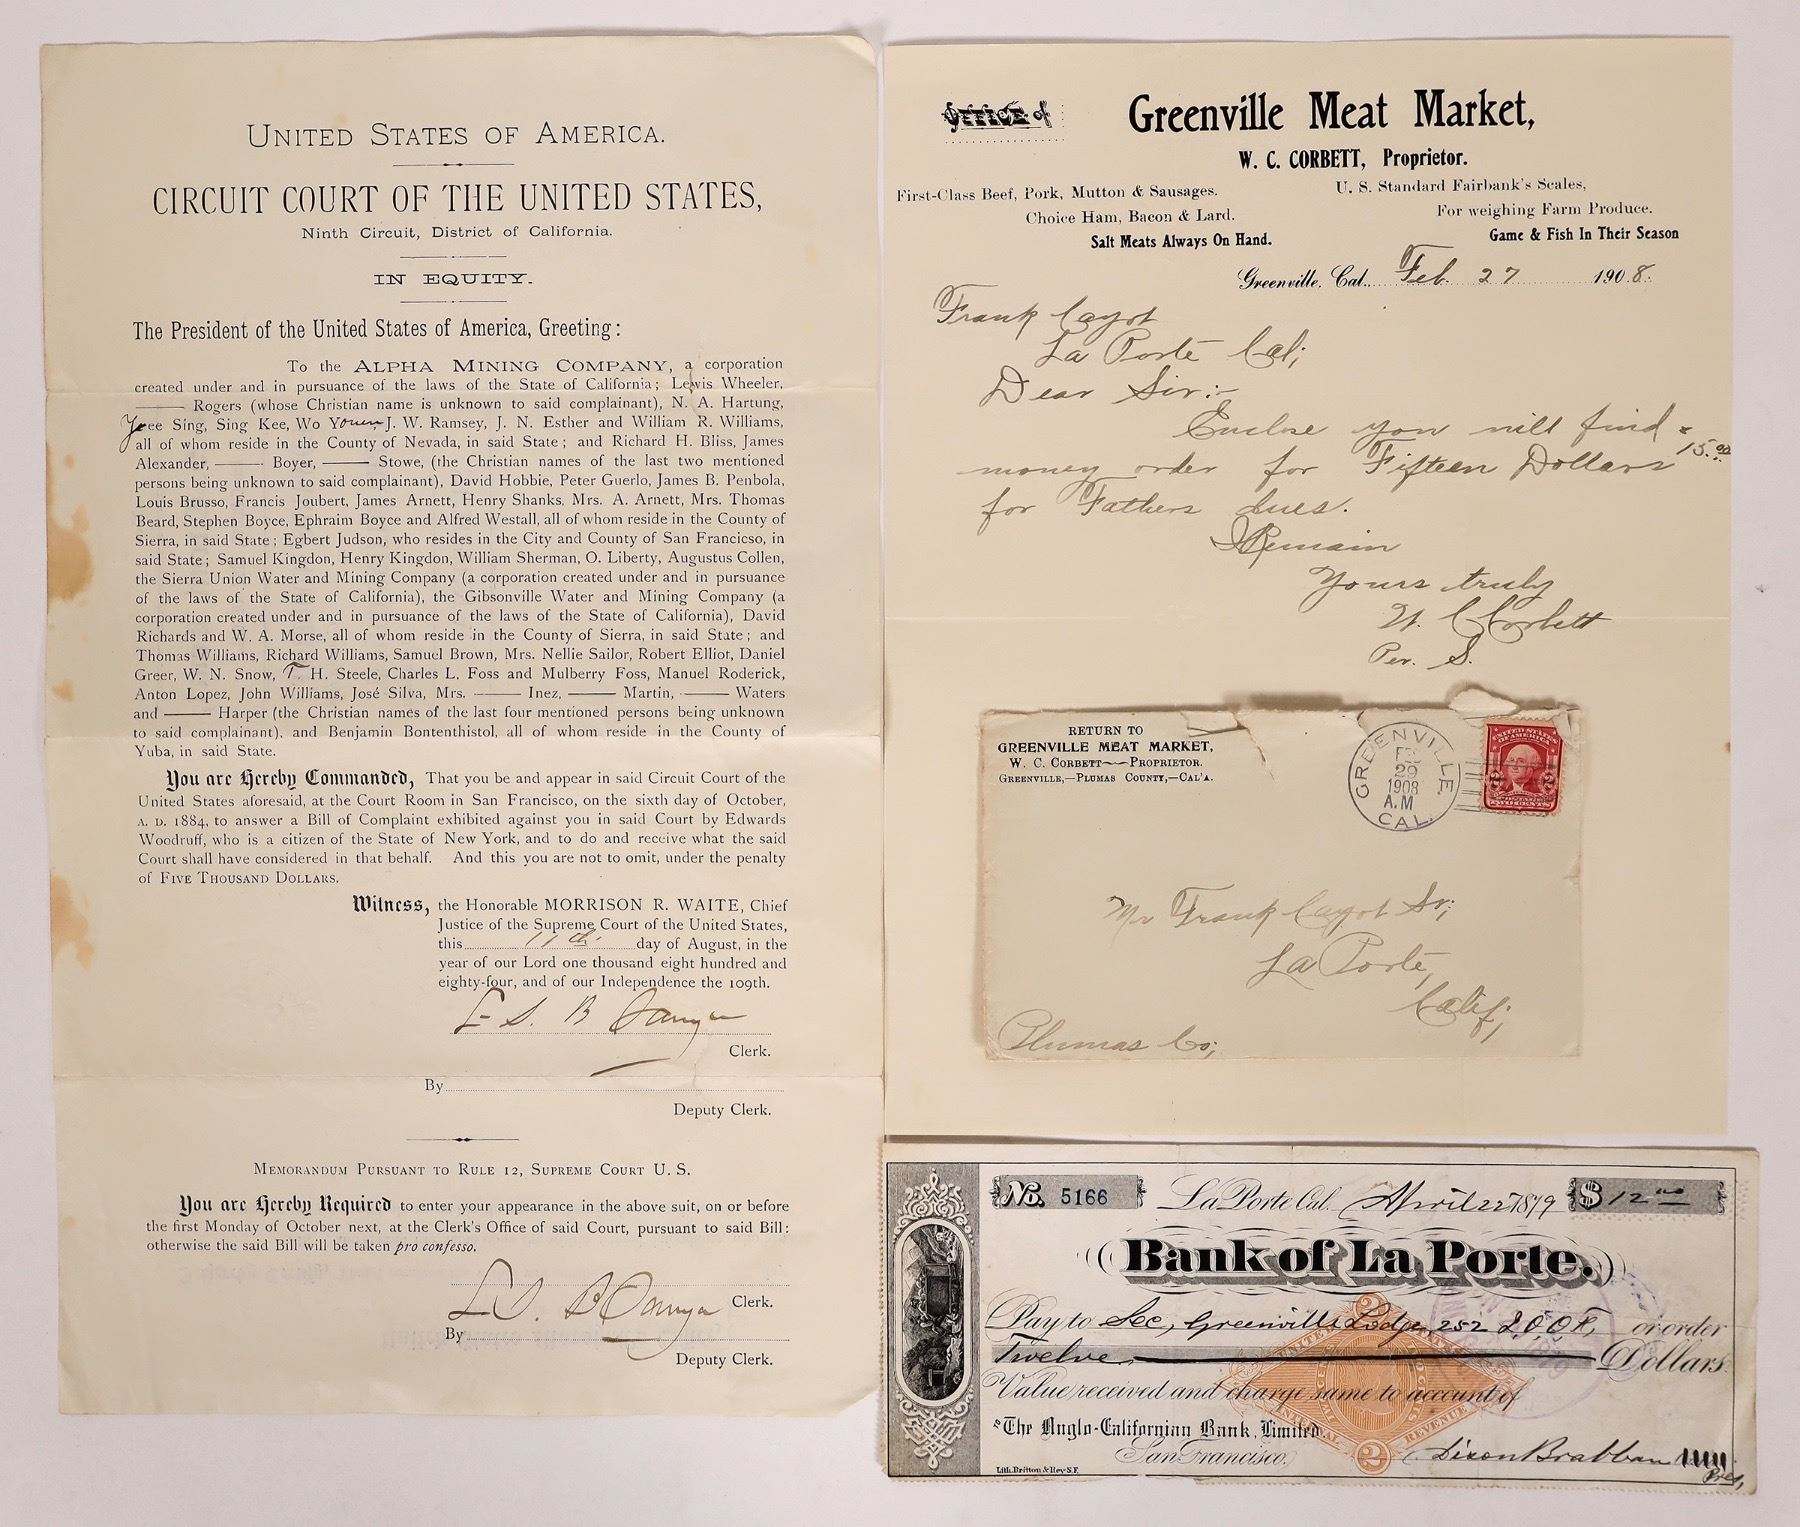 UNITED STATES OF AMERICA.
CIRCUIT COURT OF THE UNITED STATES,
Ninth Circuit, District of California.
IN EQUITY.
The President of the United States of America, Greeting:
To the ALPHA MINING COMPANY, a corporation
created under and in pursuance of the laws of the State of California; Lewis Wheeler,
——— Rogers (whose Christian name is unknown to said complainant), N. A. Hartung,
Yee Sing, Sing Kee, Wo Youen, J. W. Ramsey, J. N. Esther and William R. Williams,
all of whom reside in the County of Nevada, in said State; and Richard H. Bliss, James
Alexander, ——— Boyer, ——— Stowe, (the Christian names of the last two mentioned
persons being unknown to said complainant), David Hobbie, Peter Guerlo, James B. Penbola,
Louis Brusso, Francis Joubert, James Arnett, Henry Shanks, Mrs. A. Arnett, Mrs. Thomas
Beard, Stephen Boyce, Ephraim Boyce and Alfred Westall, all of whom reside in the County of
Sierra, in said State; Egbert Judson, who resides in the City and County of San Francicso, in
said State; Samuel Kingdon, Henry Kingdon, William Sherman, O. Liberty, Augustus Collen,
the Sierra Union Water and Mining Company (a corporation created under and in pursuance
of the laws of the State of California), the Gibsonville Water and Mining Company (a
corporation created under and in pursuance of the laws of the State of California), David
Richards and W. A. Morse, all of whom reside in the County of Sierra, in said State; and
Thomas Williams, Richard Williams, Samuel Brown, Mrs. Nellie Sailor, Robert Elliot, Daniel
Greer, W. N. Snow, T. H. Steele, Charles L. Foss and Mulberry Foss, Manuel Roderick,
Anton Lopez, John Williams, José Silva, Mrs. ——— Inez, ——— Martin, ——— Waters
and ——— Harper (the Christian names of the last four mentioned persons being unknown
to said complainant), and Benjamin Bontenthistol, all of whom reside in the County of
Yuba, in said State.
You are Hereby Commanded, That you be and appear in said Circuit Court of the
United States aforesaid, at the Court Room in San Francisco, on the sixth day of October,
A. D. 1884, to answer a Bill of Complaint exhibited against you in said Court by Edwards
Woodruff, who is a citizen of the State of New York, and to do and receive what the said
Court shall have considered in that behalf. And this you are not to omit, under the penalty
of FIVE THOUSAND DOLLARS.
Witness, the Honorable MORRISON R. WAITE, Chief
Justice of the Supreme Court of the United States,
this 11th day of August, in the
year of our Lord one thousand eight hundred and
eighty-four, and of our Independence the 109th.
L. S. B Sawyer
Clerk.
By
Deputy Clerk.
MEMORANDUM PURSUANT TO RULE 12, SUPREME COURT U. S.
You are Hereby Required to enter your appearance in the above suit, on or before
the first Monday of October next, at the Clerk's Office of said Court, pursuant to said Bill:
otherwise the said Bill will be taken pro confesso.
L. S. B Sawyer Clerk.
By
Deputy Clerk.
Office of Greenville Meat Market,
W. C. CORBETT, Proprietor.
First-Class Beef, Pork, Mutton & Sausages.
Choice Ham, Bacon & Lard.
Salt Meats Always On Hand.
U. S. Standard Fairbank's Scales,
For weighing Farm Produce.
Game & Fish In Their Season
Greenville, Cal. Feb. 27 1908.
Frank Cayot
La Porte Cal;
Dear Sir:-
Enclose you will find
money order for Fifteen Dollars 15.00
for Fathers dues.
I Remain
Yours truly
W. C Corbett
Per. S.
RETURN TO
GREENVILLE MEAT MARKET,
W. C. CORBETT—PROPRIETOR.
GREENVILLE,—PLUMAS COUNTY,—CAL'A.
GREENVILLE
FEB
29
1908
A.M
CAL.
UNITED STATES
OF AMERICA
2 2
TWO CENTS
Mr Frank Cayot Sr;
La Porte,
Calif;
Plumas Co;
No. 5166 La Porte Cal. April 22 1879 $12 00
Bank of La Porte.
Pay to Sec, Greenville Lodge, 252 I.O.O.F, or order
Twelve Dollars
Value received and charge same to account of
To The Anglo-Californian Bank, Limited
San Francisco.
Dixon Brabban
Pres,
Lith. Britton & Rey S.F.
2
UNITED STATES
INTERNAL REVENUE
TWO CENTS
2